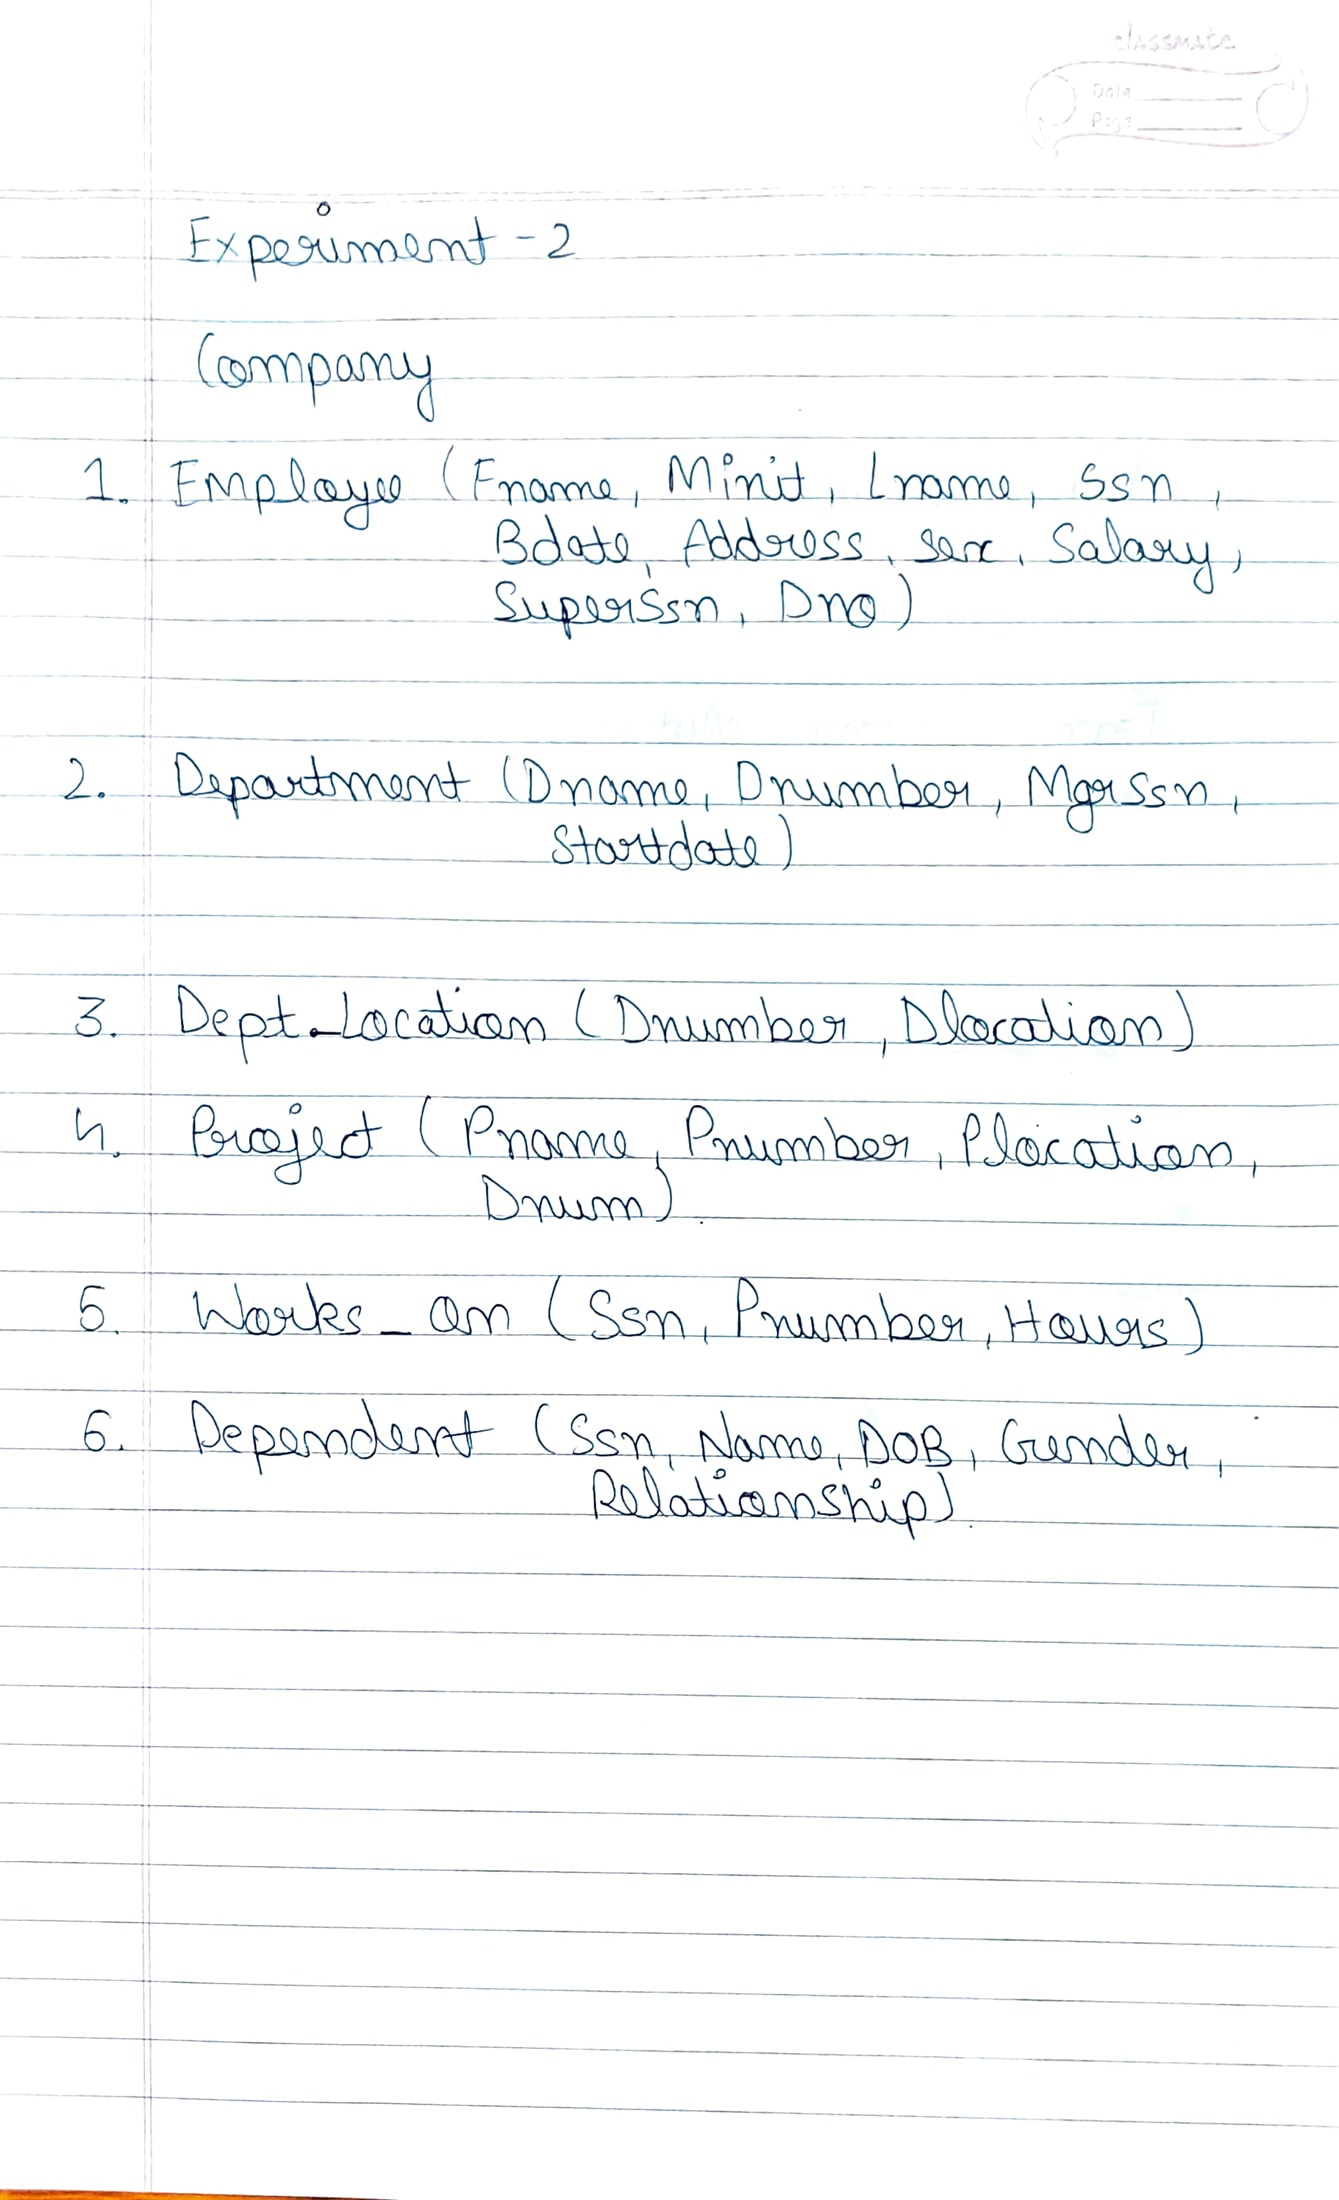 classmate
Date
Page
Experiment - 2
Company
1. Employee (Fname, Minit, Lname, Ssn,
Bdate, Address, sex, Salary,
SuperSsn, Dno)
2. Department (Dname, Dnumber, MgrSsn,
Startdate)
3. Dept_Location (Dnumber, Dlocation)
4. Project (Pname, Pnumber, Plocation,
Dnum).
5. Works_on (Ssn, Pnumber, Hours)
6. Dependent (Ssn, Name, DOB, Gender,
Relationship).